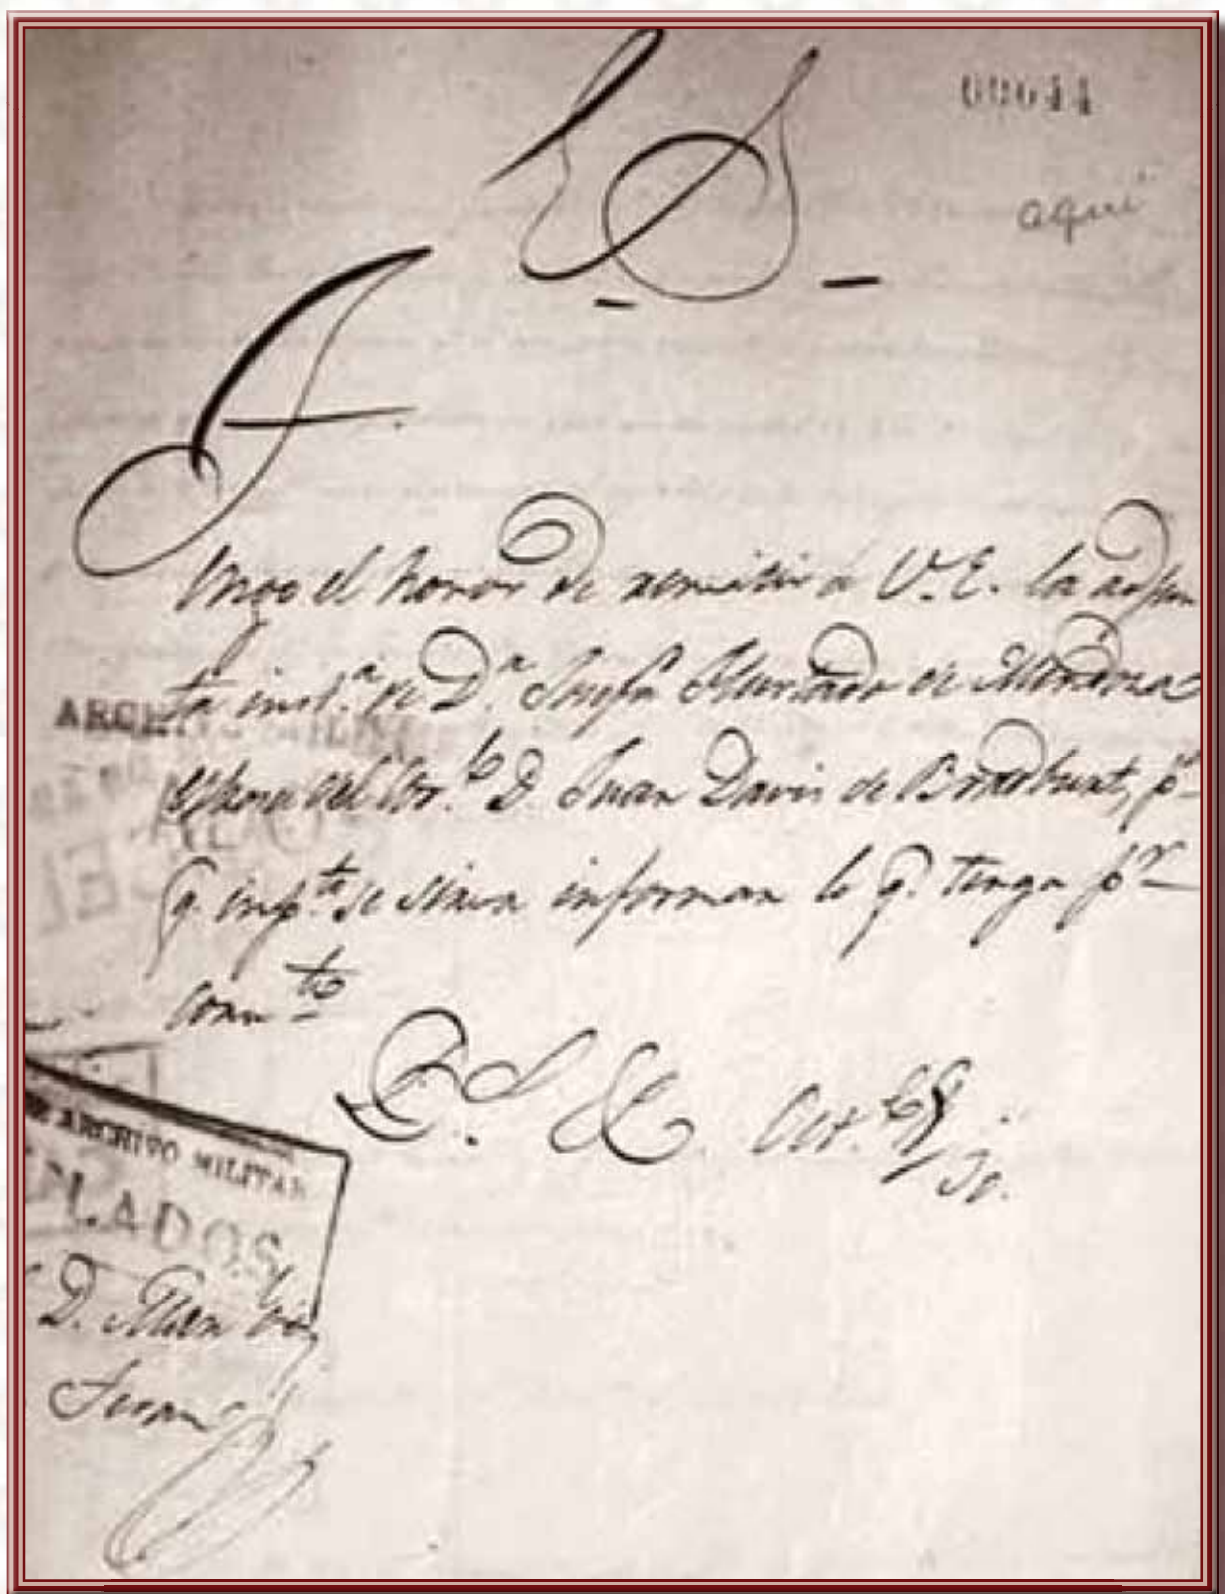 00644
aqui
E. S.
Tengo el honor de remitir á V. E. la adjun
ta inst.ª de D.ª Josefa Hurtado de Mendoza
esposa del Cor.l D. Juan Davis de Bradburt, p.ª
q. se sirva informar lo q. tenga p.r
conv.te
D.s &. Oct.
ARCHIVO MILITAR
ARCHIVO MILITAR
LADOS
D.